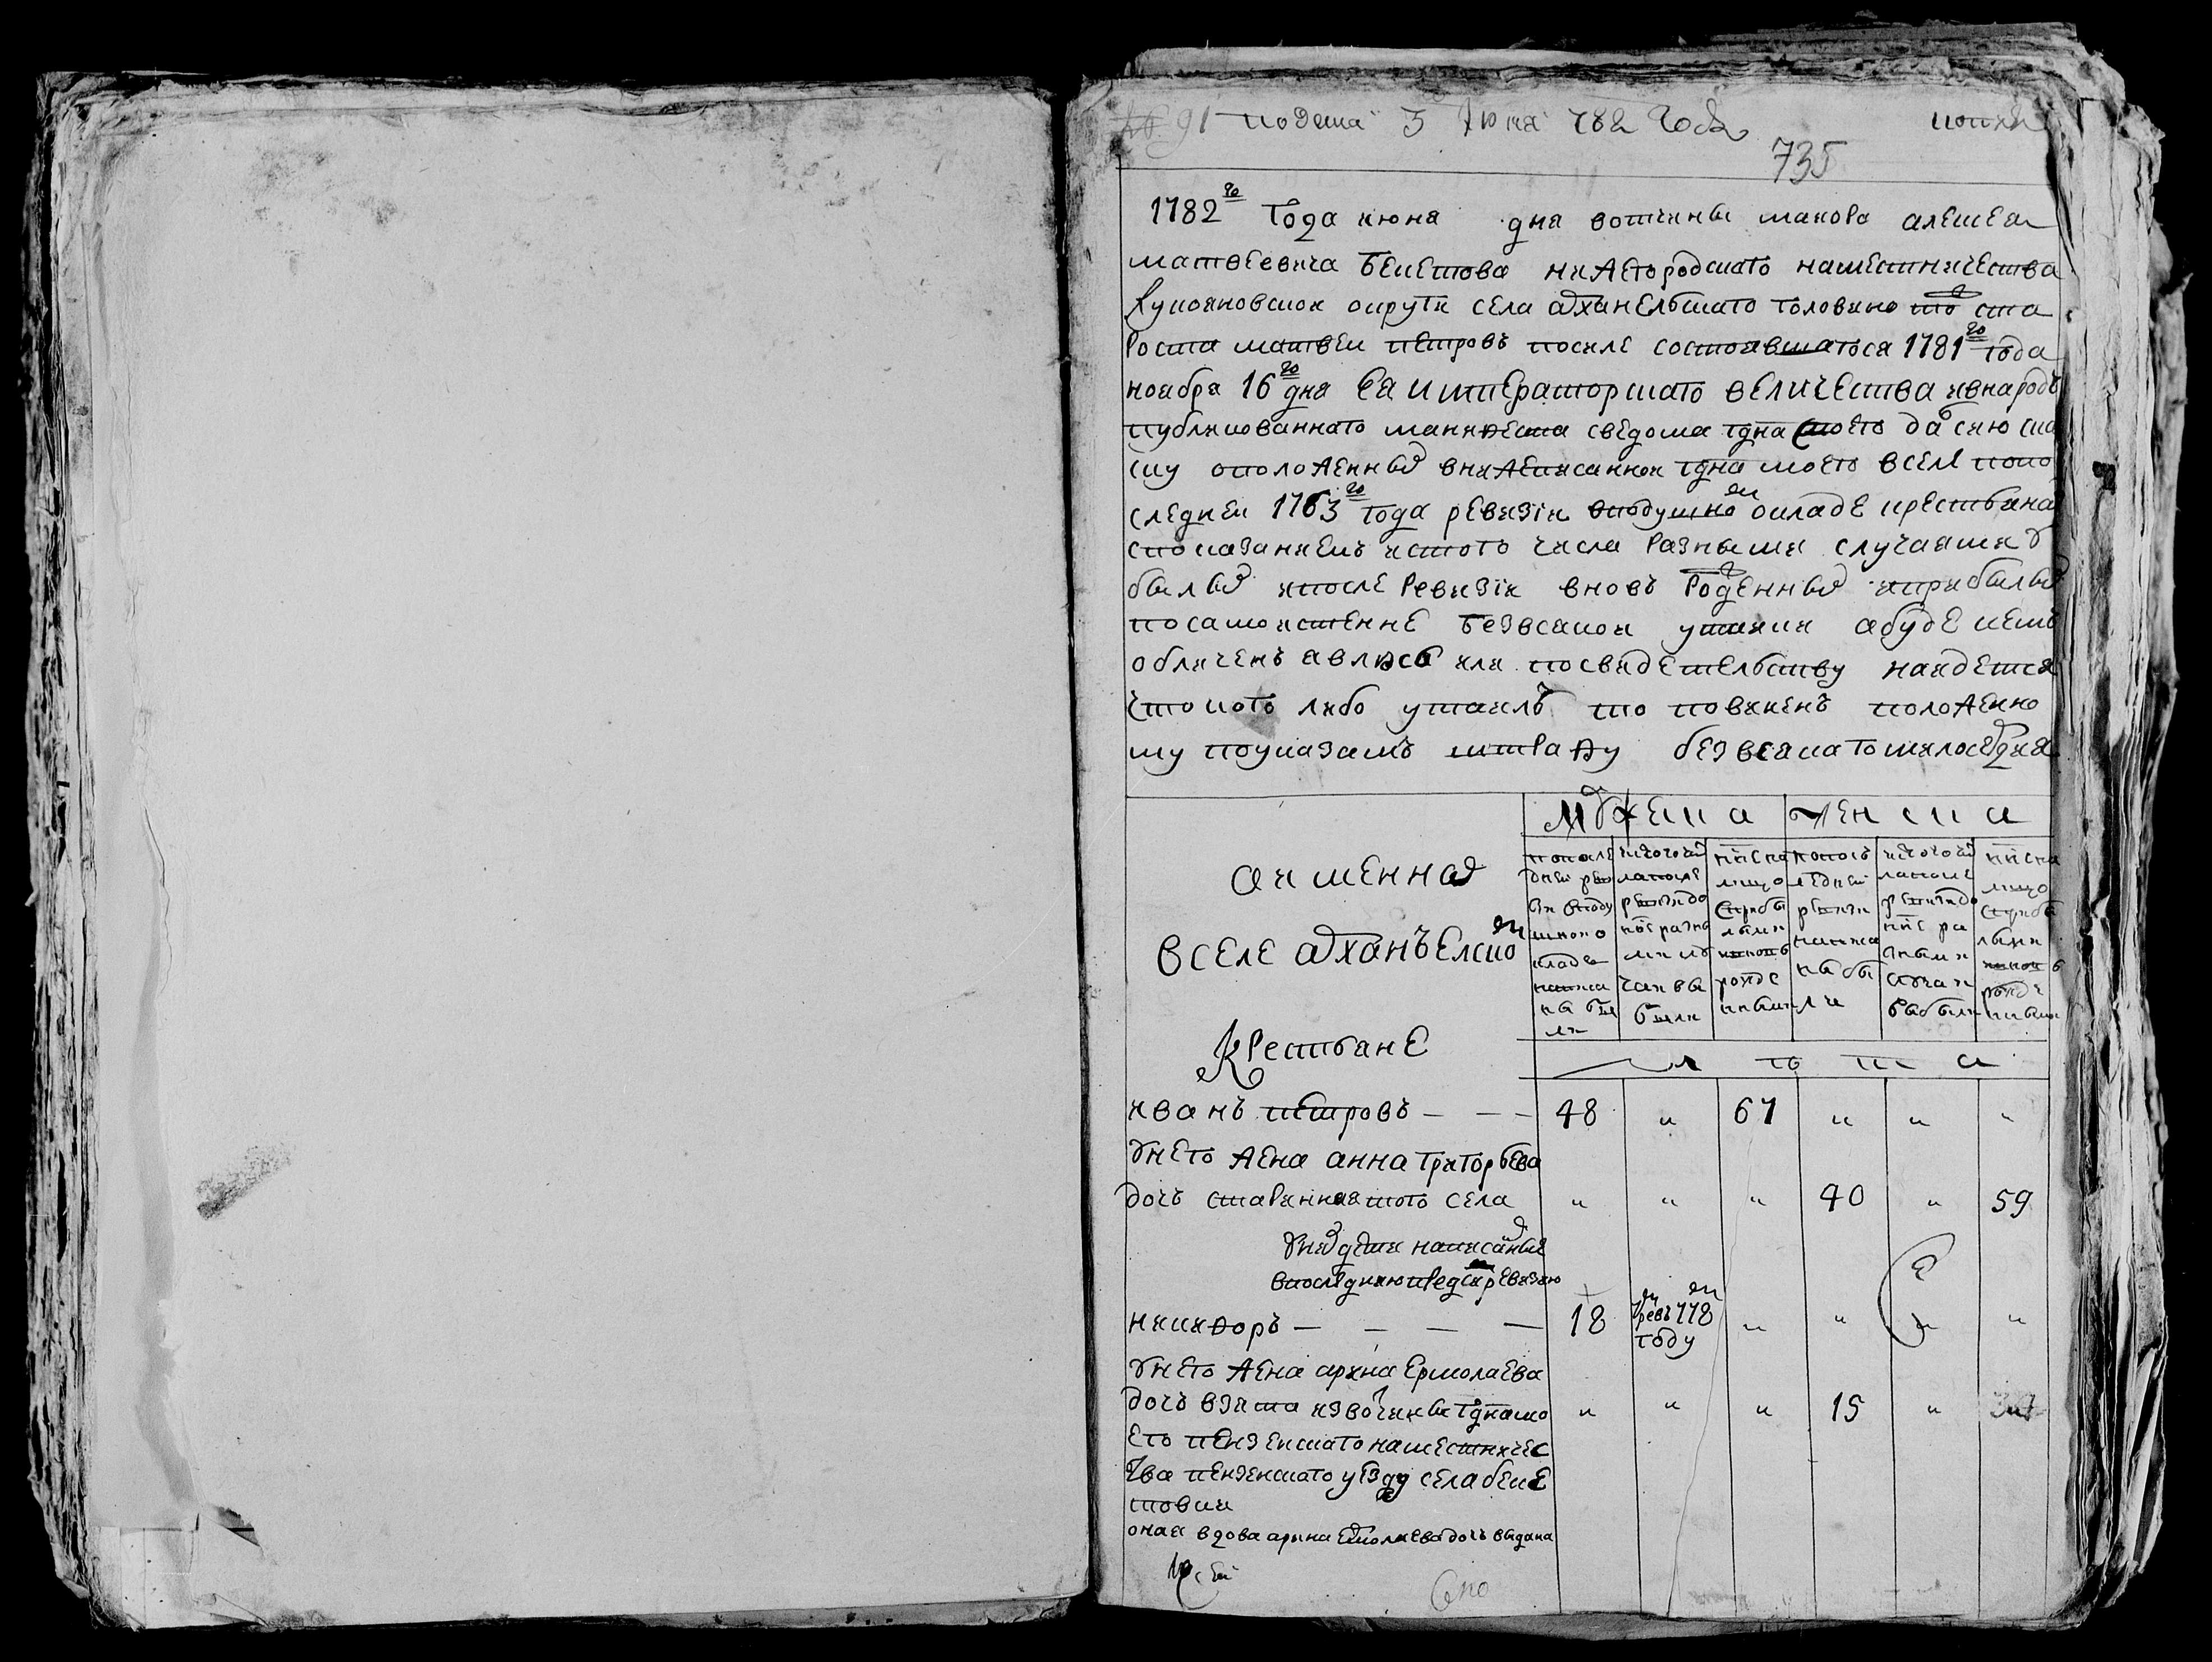 91 подана 5 июня 782 году
735
1782го года июня дня вотчины маиора алексея
матвеевича бекетова нижегородскаго наместничества
лукояновской округи села архангелскаго голованово тож ста
роста матвей петровъ после состоявшагося 1781го года
ноября 16го дня ея императорскаго величества и внародъ
публикованнаго манифеста сведома гдна своего далъ сию ска
ску о положенных в нижеписанном гдна моего селе по по
следней 1763го года ревизии в подушной окладе крестьянах
с показаниемъ ис того числа разными случаями у
былых и после ревизии вновь рожденных и прибылых
по самой истенне без всякой утайки а буде кемъ
обличенъ явлюсь или по свидетельству найдется
что кого либо утаилъ то повиненъ положенно
му по указамъ штрафу без всякаго милосердия
мужеска женска
а имянно
в селе архангелской
крестьяне
по после
дней реви
зии в поду
шном о
кладе
написа
ны бы
ли
ис того чи
ла после
ревизии до
ныне разны
ми слу
чаи вы
были
ныне на
лицо
с прибы
лыми
и вновь
рожде
нными
по после
дней
ревизии
написа
ны бы
ли
ис того чи
ла после
ревизии до
ныне ра
зными
случаи
выбыли
ныне на
лицо
с прибы
лыми
и вновь
рожде
нными
лета
иванъ петровъ — — — 48 „ 67 „ „ „
у него жена анна григорьева
дочь стариннаго того села „ „ „ 40 „ 59
у них дети написанные
в последнюю пред сим ревизию
никифоръ — — — — 18 „ „ „ „
году
у него жена арина ермолаева
дочь взята из вотчины гдна мо „ „ „ 15 „
его пензенскаго наместничес
тва пензенскаго уезду села беке
товки
оная вдова арина ермолаева дочь выдана